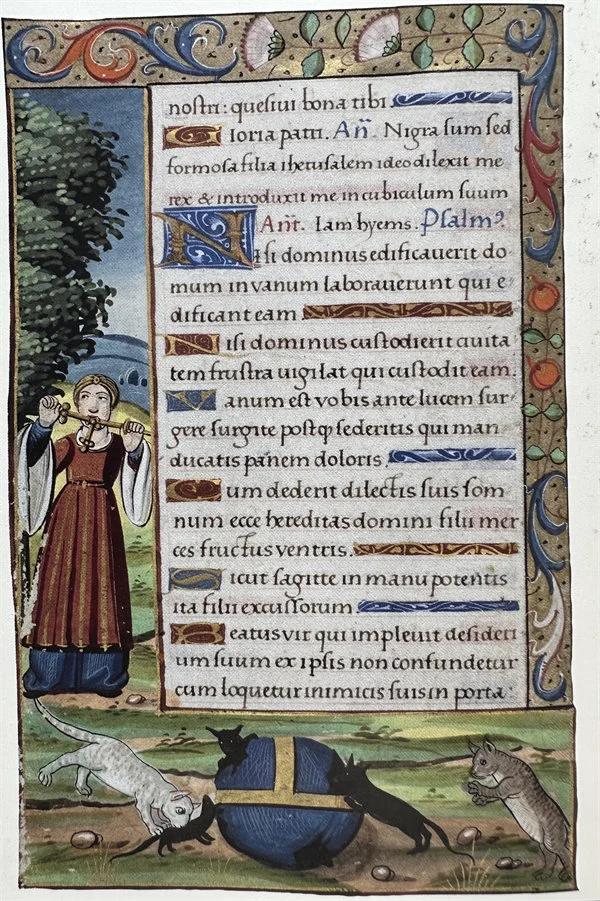 nostri: quesiui bona tibi
Gloria patri. Añ. Nigra sum sed
formosa filia iherusalem ideo dilexit me
rex & introduxit me in cubiculum suum
Añt. Iam hyems. Psalmꝰ
Nisi dominus edificauerit do
mum in vanum laborauerunt qui e
dificant eam.
Nisi dominus custodierit ciuita
tem frustra uigilat qui custodit eam.
Vanum est vobis ante lucem sur
gere surgite postqͣ sederitis qui man
ducatis panem doloris.
Cum dederit dilectis suis som
num ecce hereditas domini filii mer
ces fructus ventris.
Sicut sagitte in manu potentis
ita filii excussorum.
Beatus vir qui impleuit desideri
um suum ex ipsis non confundetur
cum loquetur inimicis suis in porta: